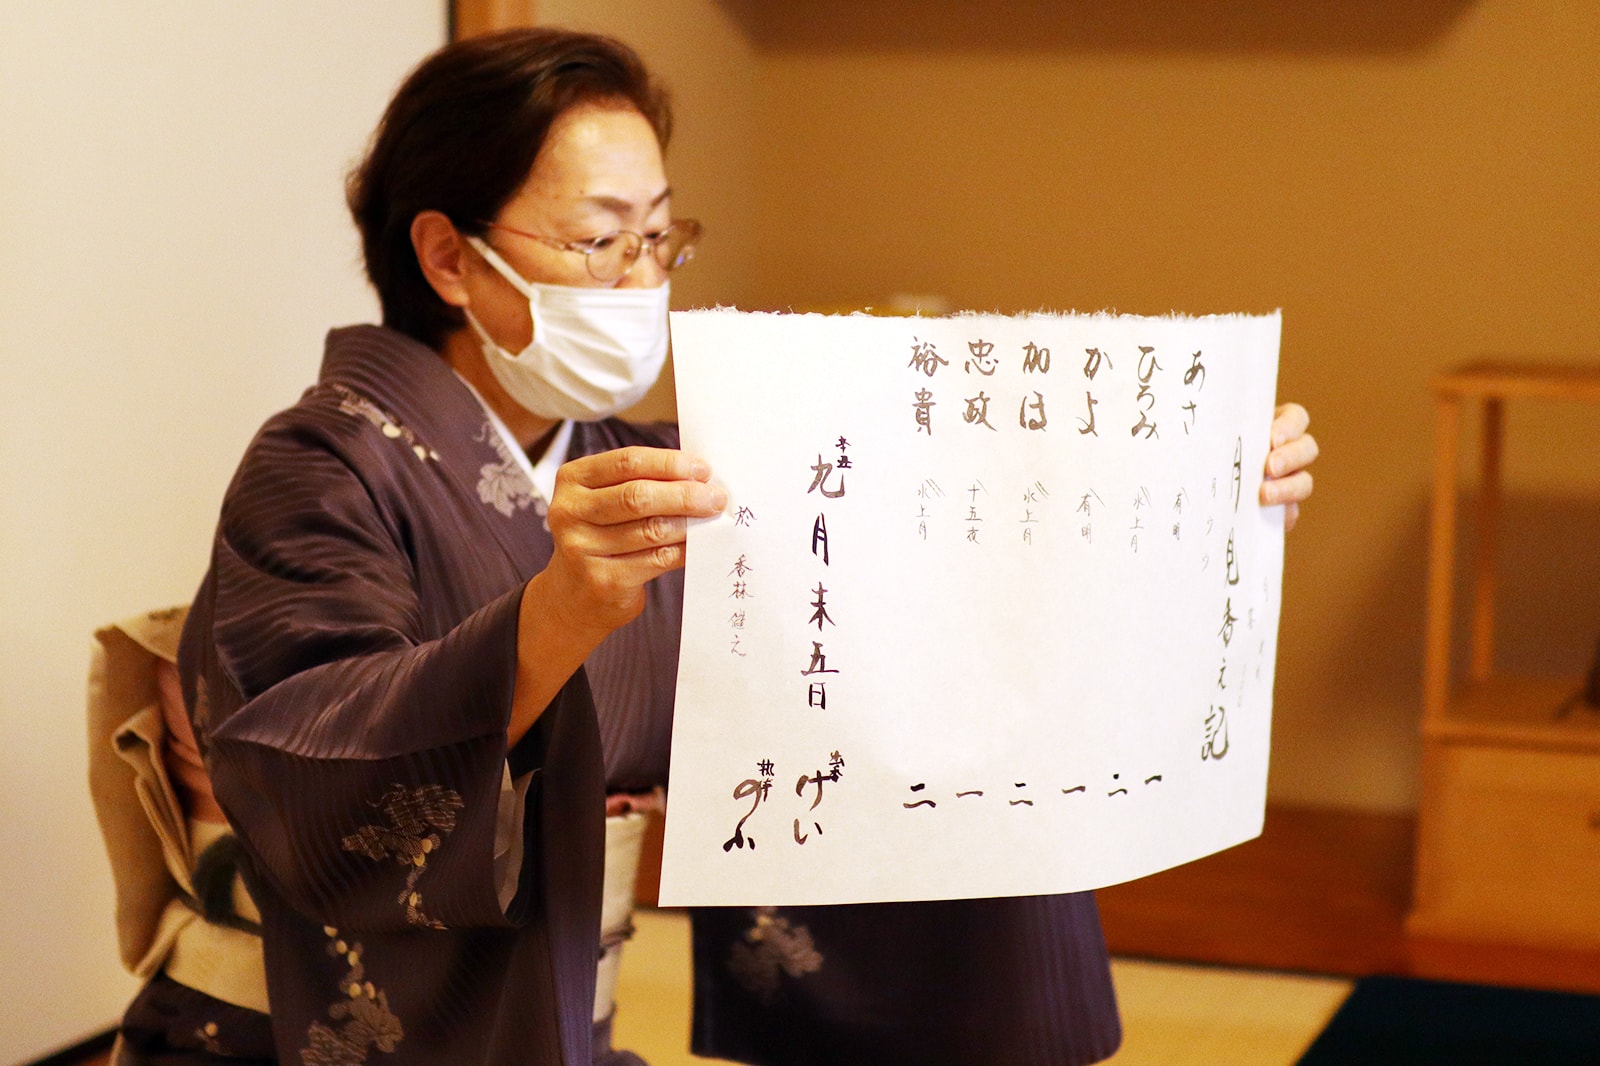 月見香之記
あさ 有明 一
ひろみ 水上月 二
かよ 有明 一
加ほ 水上月 二
忠政 十五夜 一
裕貴 水上月 二
辛丑
九月末五日
出香
けい
於 香林
執筆
のふ